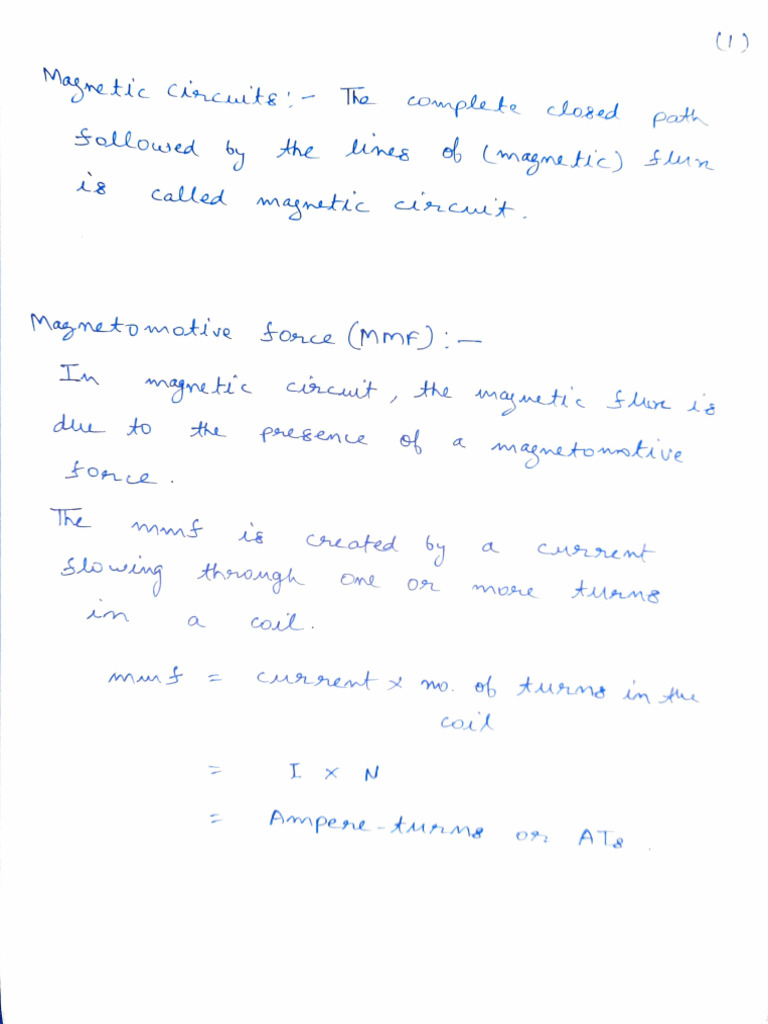 (1)
Magnetic circuits:- The complete closed path
followed by the lines of (magnetic) flux
is called magnetic circuit.
Magnetomotive force (MMF):-
In magnetic circuit, the magnetic flux is
due to the presence of a magnetomotive
force.
The mmf is created by a current
flowing through one or more turns
in a coil.
mmf = current x no. of turns in the
coil
= I x N
= Ampere-turns or ATs.